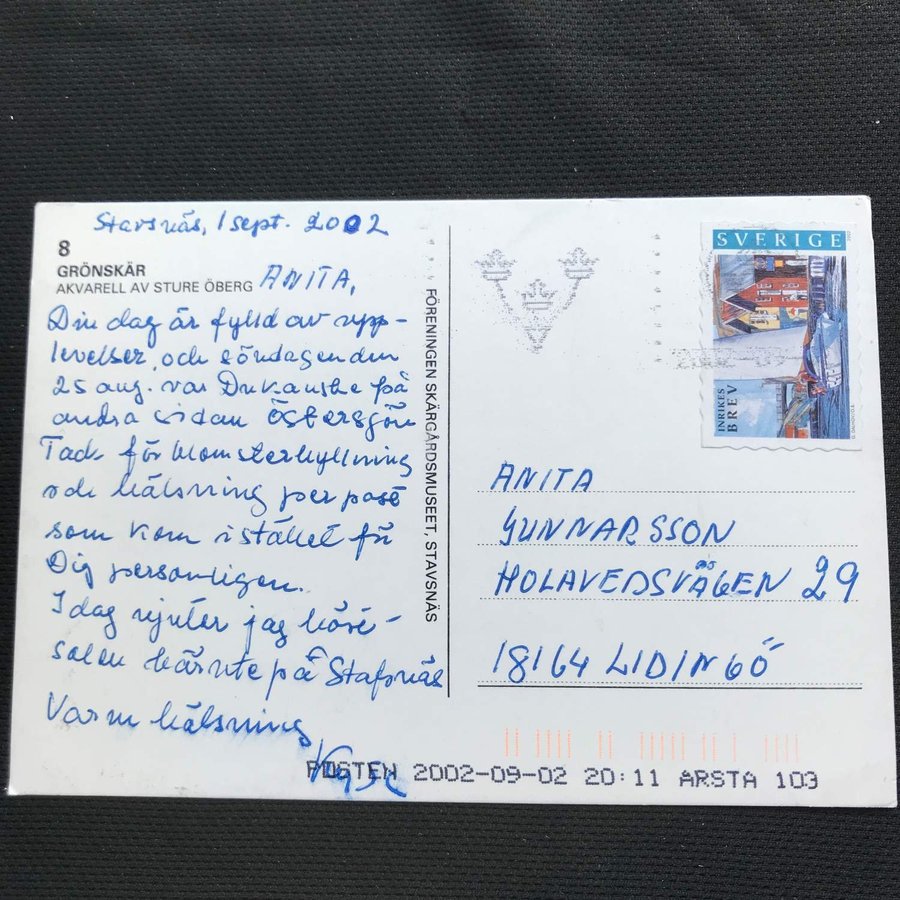 Stavsnäs, 1 sept. 2002
8
GRÖNSKÄR
AKVARELL AV STURE ÖBERG
ANITA,
Din dag är fylld av upp-
levelser, och söndagen den
25 aug. var Du kanske på
andra sidan Östersjön
Tack för blomsterhyllning
och hälsning per post
som kom i stället för
Dig personligen.
I dag njuter jag
solen härute på Stafsnäs
Varm hälsning
FÖRENINGEN SKÄRGÅRDSMUSEET, STAVSNÄS
SVERIGE
INRIKES
BREV
ANITA
GUNNARSSON
HOLAVEDSVÄGEN 29
18164 LIDINGÖ
POSTEN 2002-09-02 20:11 ARSTA 103